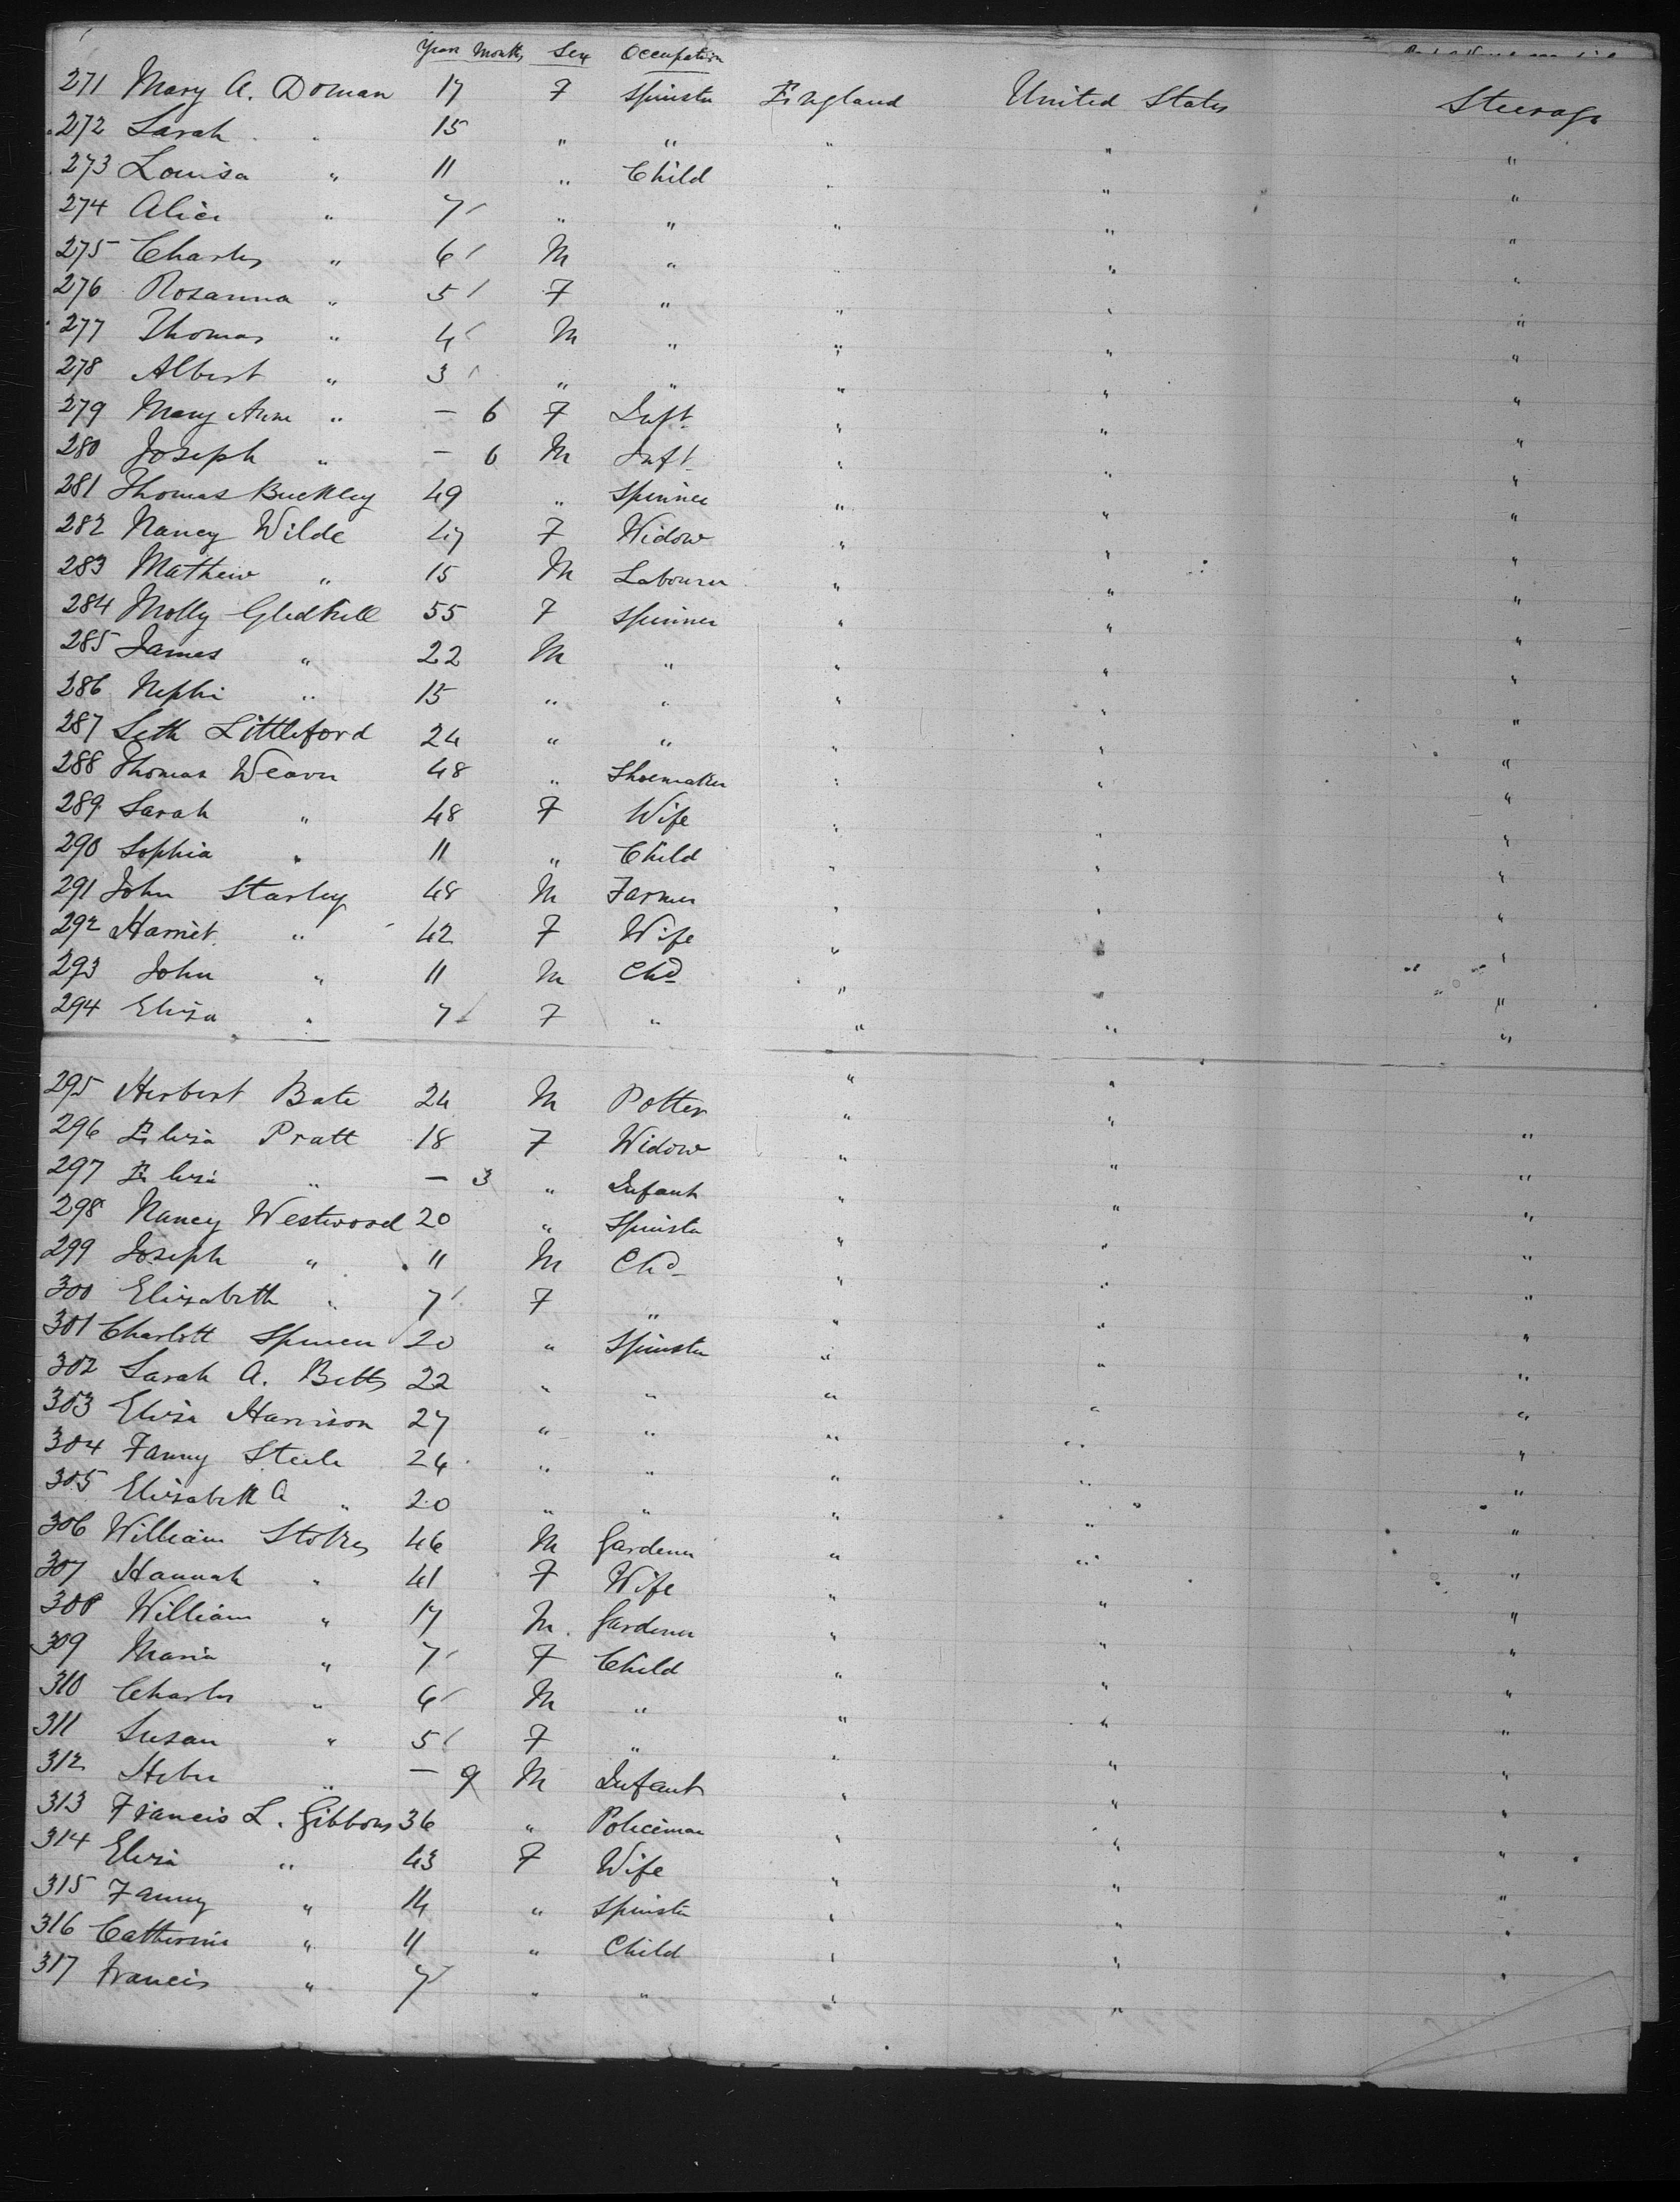 Years Months Sex Occupation
271 Mary A. Doman 17 F Spinster England United States Steerage
272 Sarah " 15 " " " " "
273 Louisa " 11 " Child " " "
274 Alice " 7 " " " " "
275 Charles " 6 M " " " "
276 Rosanna " 5 F " " " "
277 Thomas " 4 M " " " "
278 Albert " 3 " " " " "
279 Mary Anne " — 6 F Inft " " "
280 Joseph " — 6 M Inft " " "
281 Thomas Buckley 49 " Spinner " " "
282 Nancy Wilde 47 F Widow " " "
283 Mathew " 15 M Labourer " " "
284 Molly Gledhill 55 F Spinner " " "
285 James " 22 M " " " "
286 Nephi " 15 " " " " "
287 Seth Littleford 24 " " " " "
288 Thomas Weaver 48 " Shoemaker " " "
289 Sarah " 48 F Wife " " "
290 Sophia " 11 " Child " " "
291 John Starley 48 M Farmer " " "
292 Harriet " 42 F Wife " " "
293 John " 11 M Chd " " "
294 Eliza " 7 F " " " "
295 Herbert Bate 24 M Potter " " "
296 Eliza Pratt 18 F Widow " " "
297 Eliza " — 3 " Infant " " "
298 Nancy Westwood 20 " Spinster " " "
299 Joseph " 11 M Chd " " "
300 Elizabeth " 7 F " " " "
301 Charlott Spencer 20 " Spinster " " "
302 Sarah A. Betts 22 " " " " "
303 Eliza Harrison 27 " " " " "
304 Fanny Steele 24 " " " " "
305 Elizabeth A " 20 " " " " "
306 William Stokes 46 M Gardener " " "
307 Hannah " 41 F Wife " " "
308 William " 17 M Gardener " " "
309 Maria " 7 F Child " " "
310 Charles " 6 M " " " "
311 Susan " 5 F " " " "
312 Heber " — 9 M Infant " " "
313 Francis L. Gibbons 36 " Policeman " " "
314 Eliza " 43 F Wife " " "
315 Fanny " 14 " Spinster " " "
316 Catherine " 11 " Child " " "
317 Francis " 7 " " " "